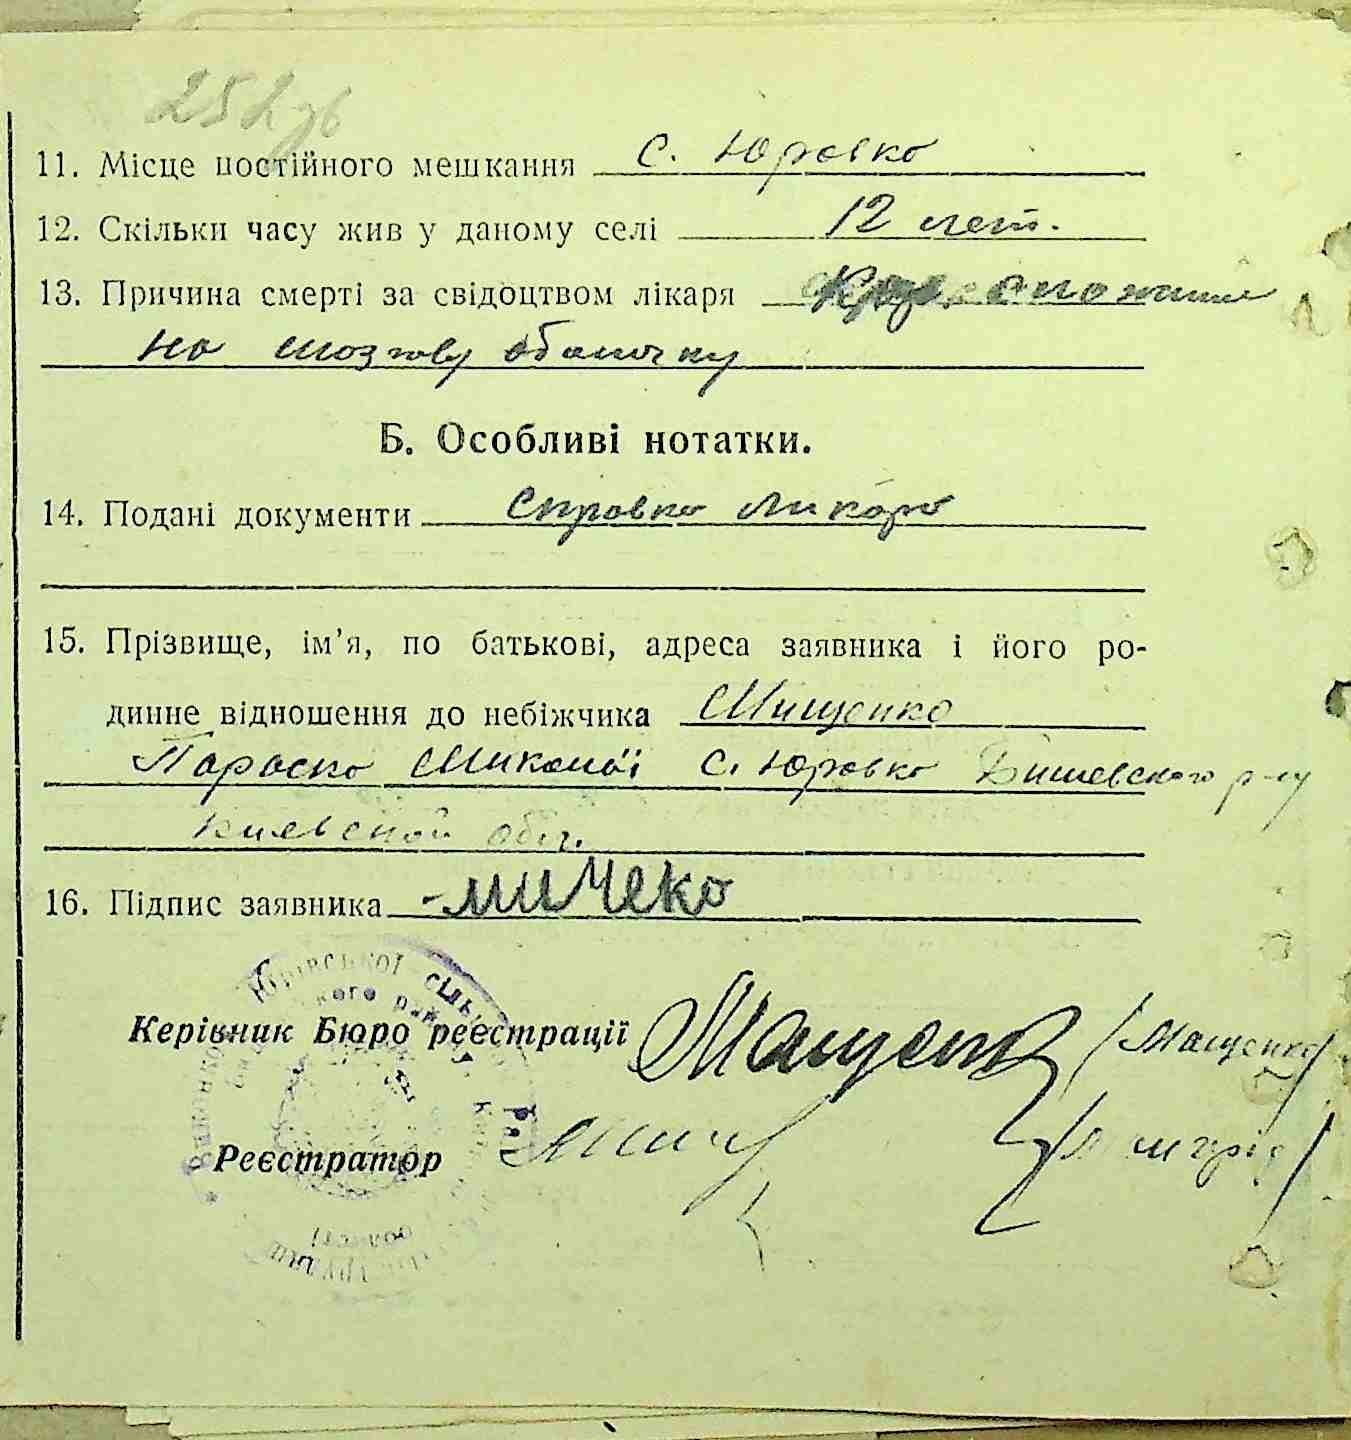 252зв
11. Місце постійного мешкання с. Юровка
12. Скільки часу жив у даному селі 12 лет.
13. Причина смерті за свідоцтвом лікаря
на мозгову оболочку
Б. Особливі нотатки.
14. Подані документи Справка Ликара
15. Прізвище, ім’я, по батькові, адреса заявника і його ро-
динне відношення до небіжчика Мищенко
Параска с. Юровка Бишевского р-ну
Киевской обл.
16. Підпис заявника -миЧеко
Юрівської сільської ра
Керівник Бюро реєстрації Мащенко /Мащенко/
Реєстратор